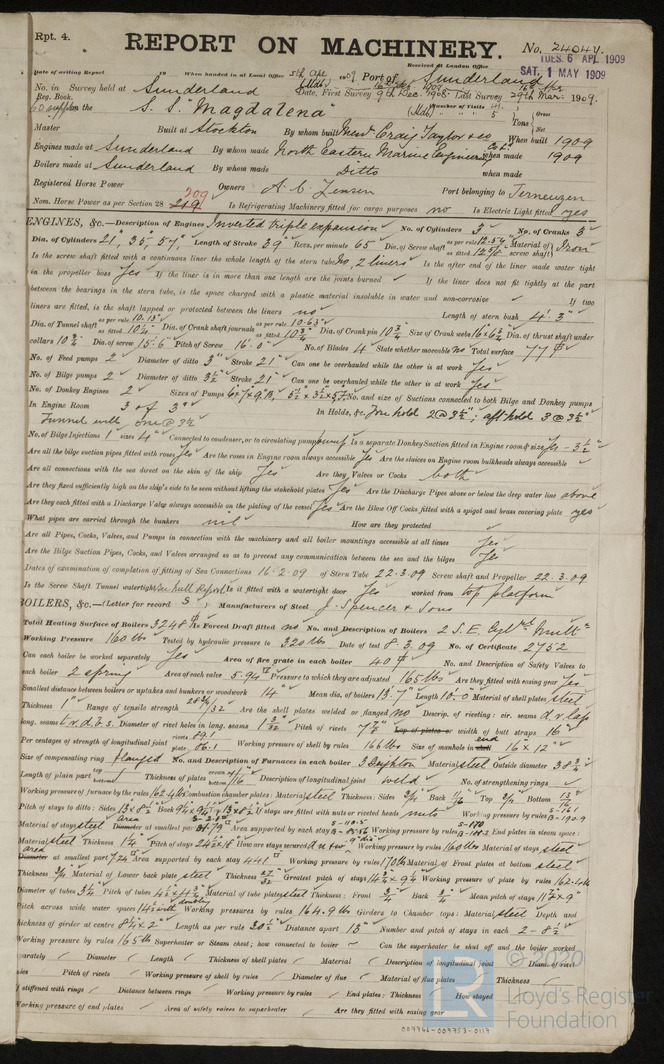 Rpt. 4.
REPORT ON MACHINERY.
No. 24044
TUES. 6 APL 1909
SAT. 1 MAY 1909
Date of writing Report 19 When handed in at Local Office 5th Apr 1909 Port of Sunderland
Received at London Office
No. in Survey held at Sunderland Date, First Survey 9th Dec. 1908 Last Survey 29th Mar. 1909.
Reg. Book.
on the S. S. "Magdalena" (Number of Visits
Tons Gross
Net
Master Built at Stockton By whom built Mess. Craig Taylor & Co When built 1909
Engines made at Sunderland By whom made North Eastern Marine Engineering Co Ld when made 1909
Boilers made at Sunderland By whom made Ditto when made
Registered Horse Power Owners A. C. Jensen Port belonging to Terneuzen
Nom. Horse Power as per Section 28 219 209 Is Refrigerating Machinery fitted for cargo purposes no Is Electric Light fitted yes
ENGINES, &c.—Description of Engines Inverted triple expansion No. of Cylinders 3 No. of Cranks 3
Dia. of Cylinders 21", 35", 57" Length of Stroke 39" Revs. per minute 65 Dia. of Screw shaft as per rule 12.54" as fitted 12 5/8" Material of screw shaft Iron
Is the screw shaft fitted with a continuous liner the whole length of the stern tube No, 2 liners Is the after end of the liner made water tight
in the propeller boss Yes If the liner is in more than one length are the joints burned If the liner does not fit tightly at the part
between the bearings in the stern tube, is the space charged with a plastic material insoluble in water and non-corrosive If two
liners are fitted, is the shaft lapped or protected between the liners no Length of stern bush 4'-3"
Dia. of Tunnel shaft as per rule 10.13" as fitted 10 1/4" Dia. of Crank shaft journals as per rule 10.63" as fitted 10 3/4" Dia. of Crank pin 10 3/4" Size of Crank webs 16 x 6 3/4" Dia. of thrust shaft under
collars 10 3/4" Dia. of screw 15'-6" Pitch of Screw 16'-0" No. of Blades 4 State whether moveable No Total surface 77
No. of Feed pumps 2 Diameter of ditto 3" Stroke 21" Can one be overhauled while the other is at work Yes
No. of Bilge pumps 2 Diameter of ditto 3 1/2" Stroke 21" Can one be overhauled while the other is at work Yes
No. of Donkey Engines 2 Sizes of Pumps No. and size of Suctions connected to both Bilge and Donkey pumps
In Engine Room 3 of 3" In Holds, &c. Fore hold 2 @ 3 1/2"; aft hold 3 @ 3 1/2"
Tunnel well one @ 3 1/2
No. of Bilge Injections 1 sizes 4" Connected to condenser, or to circulating pump pump Is a separate Donkey Suction fitted in Engine room & size Yes - 3 1/2"
Are all the bilge suction pipes fitted with roses Yes Are the roses in Engine room always accessible Yes Are the sluices on Engine room bulkheads always accessible
Are all connections with the sea direct on the skin of the ship Yes Are they Valves or Cocks both
Are they fixed sufficiently high on the ship's side to be seen without lifting the stokehold plates Yes Are the Discharge Pipes above or below the deep water line above
Are they each fitted with a Discharge Valve always accessible on the plating of the vessel Yes Are the Blow Off Cocks fitted with a spigot and brass covering plate yes
What pipes are carried through the bunkers nil How are they protected
Are all Pipes, Cocks, Valves, and Pumps in connection with the machinery and all boiler mountings accessible at all times Yes
Are the Bilge Suction Pipes, Cocks, and Valves arranged so as to prevent any communication between the sea and the bilges Yes
Dates of examination of completion of fitting of Sea Connections 16-2-09 of Stern Tube 22.3.09 Screw shaft and Propeller 22.3.09
Is the Screw Shaft Tunnel watertight See hull Report Is it fitted with a watertight door Yes worked from top platform
BOILERS, &c.—(Letter for record S) Manufacturers of Steel J. Spencer & Sons
Total Heating Surface of Boilers 3248 Is Forced Draft fitted no No. and Description of Boilers 2 S.E. Cyl. Mult.
Working Pressure 160 lbs Tested by hydraulic pressure to 320 lbs Date of test 8.3.09 No. of Certificate 2752
Can each boiler be worked separately Yes Area of fire grate in each boiler 40 No. and Description of Safety Valves to
each boiler 2 spring Area of each valve 5.94 Pressure to which they are adjusted 165 lbs Are they fitted with easing gear Yes
Smallest distance between boilers or uptakes and bunkers or woodwork 14" Mean dia. of boilers 13'-7" Length 10'-0" Material of shell plates steel
Thickness 1" Range of tensile strength 28 3/4/32 Are the shell plates welded or flanged no Descrip. of riveting: cir. seams d.r. lap
long. seams t.r.d.b.s. Diameter of rivet holes in long. seams 1 3/32 Pitch of rivets 7 7/8 Lap of plates or width of butt straps 16"
Per centages of strength of longitudinal joint rivets 89.1 plate 86.1 Working pressure of shell by rules 166 lbs Size of manhole in end 16" x 12"
Size of compensating ring flanged No. and Description of Furnaces in each boiler 3 Deighton Material steel Outside diameter 38 3/4"
Length of plain part top bottom Thickness of plates crown bottom /16 Description of longitudinal joint weld No. of strengthening rings
Working pressure of furnace by the rules 162.4 lbs Combustion chamber plates: Material steel Thickness: Sides 21/32 Back 11/16 Top 21/32 Bottom 13/16
Pitch of stays to ditto: Sides 13 x 8 1/2 Back 9 1/4 x 9 1/4 Top 13 x 8 1/2 If stays are fitted with nuts or riveted heads nuts Working pressure by rules
Material of stays steel area Diameter at smallest part Area supported by each stay Working pressure by rules End plates in steam space:
Material steel Thickness 1 1/8 Pitch of stays 24 1/2 x 18 How are stays secured Working pressure by rules 160 lbs Material of stays steel
area Diameter at smallest part 7.24 Area supported by each stay 441 Working pressure by rules 170 lbs Material of Front plates at bottom steel
Thickness 3/4 Material of Lower back plate steel Thickness 27/32 Greatest pitch of stays 14 3/4 x 9 1/4 Working pressure of plate by rules 162.4 lbs
Diameter of tubes 3 1/4 Pitch of tubes 4 1/2 x 4 3/4 Material of tube plates steel Thickness: Front 3/4 Back 3/4 Mean pitch of stays 11 1/2 x 9"
Pitch across wide water spaces 14 1/2 with doubling Working pressures by rules 164.9 lbs Girders to Chamber tops: Material steel Depth and
thickness of girder at centre 8 1/4 x 2" Length as per rule 30 1/2 Distance apart 13" Number and pitch of stays in each 2 - 8 1/2"
Working pressure by rules 165 lb Superheater or Steam chest; how connected to boiler Can the superheater be shut off and the boiler worked
separately Diameter Length Thickness of shell plates Material Description of longitudinal joint Diam. of rivet
holes Pitch of rivets Working pressure of shell by rules Diameter of flue Material of flue plates Thickness
If stiffened with rings Distance between rings Working pressure by rules End plates: Thickness How stayed
Working pressure of end plates Area of safety valves to superheater Are they fitted with easing gear
© 2020
Lloyd's Register
Foundation
007746-007753-0117